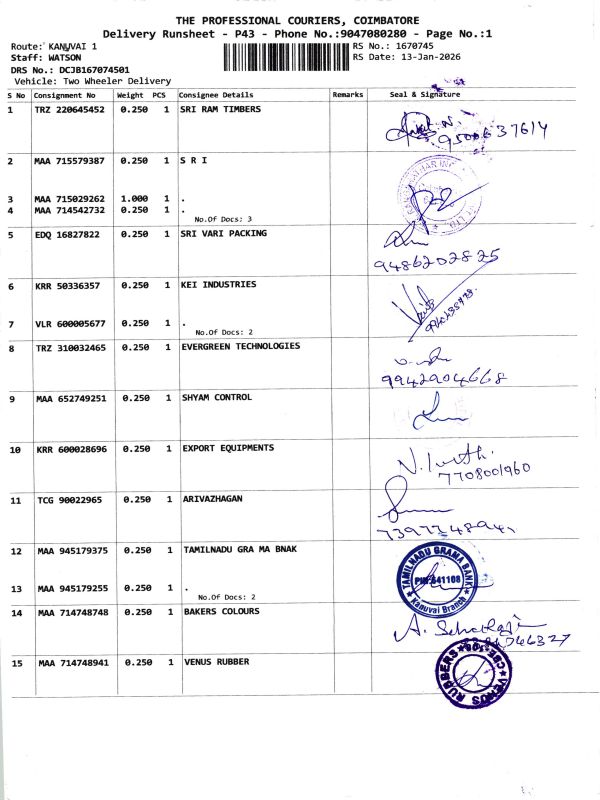 THE PROFESSIONAL COURIERS, COIMBATORE
Delivery Runsheet - P43 - Phone No.:9047080280 - Page No.:1
Route: KANUVAI 1
RS No.: 1670745
Staff: WATSON
RS Date: 13-Jan-2026
DRS No.: DCJB167074501
Vehicle: Two Wheeler Delivery
S No Consignment No Weight PCS Consignee Details Remarks Seal & Signature
1 TRZ 220645452 0.250 1 SRI RAM TIMBERS
9500637614
2 MAA 715579387 0.250 1 S R I
3 MAA 715029262 1.000 1 .
4 MAA 714542732 0.250 1 .
No.Of Docs: 3
5 EDQ 16827822 0.250 1 SRI VARI PACKING
9486202825
6 KRR 50336357 0.250 1 KEI INDUSTRIES
7 VLR 600005677 0.250 1 .
No.Of Docs: 2
8 TRZ 310032465 0.250 1 EVERGREEN TECHNOLOGIES
9942904668
9 MAA 652749251 0.250 1 SHYAM CONTROL
10 KRR 600028696 0.250 1 EXPORT EQUIPMENTS
7708001960
11 TCG 90022965 0.250 1 ARIVAZHAGAN
12 MAA 945179375 0.250 1 TAMILNADU GRA MA BNAK
TAMILNADU GRAMA BANK
PIN-641108
Kanuvai Branch
13 MAA 945179255 0.250 1 .
No.Of Docs: 2
14 MAA 714748748 0.250 1 BAKERS COLOURS
15 MAA 714748941 0.250 1 VENUS RUBBER
VENUS RUBBERS